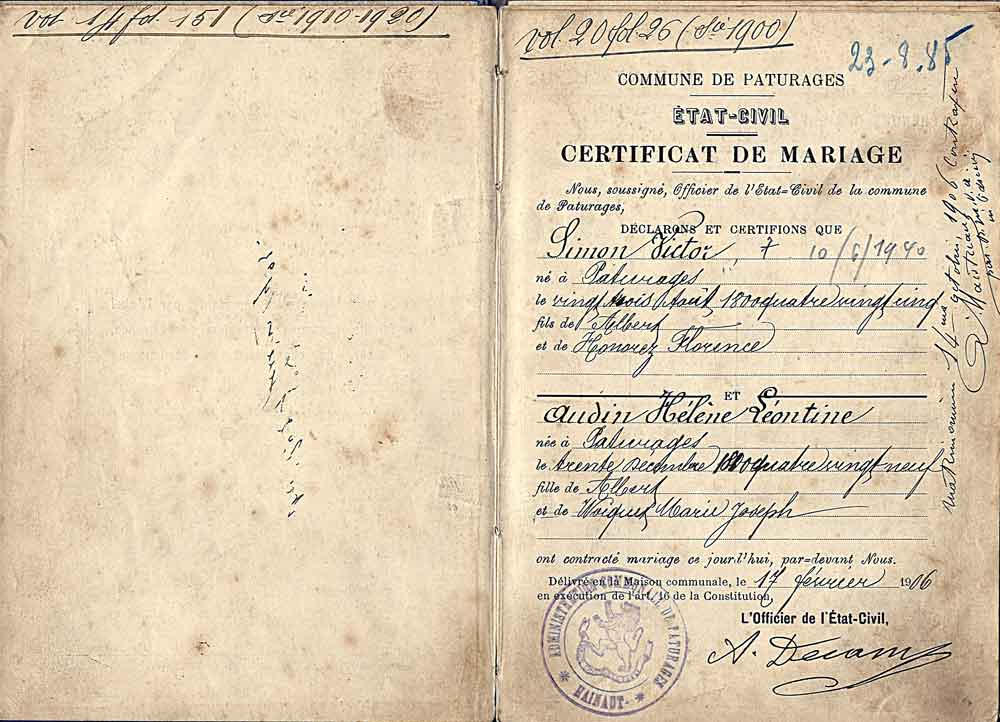 vol 14 fol. 151 (Sie 1910-1920)
vol. 20 fol 26 (Sie 1900)
23-8.85
COMMUNE DE PATURAGES
ÉTAT-CIVIL
CERTIFICAT DE MARIAGE
Nous, soussigné, Officier de l'Etat=Civil de la commune
de Paturages,
DÉCLARONS ET CERTIFIONS QUE
Simon Victor, 10/6/1940
né à Paturages
le vingt trois Août 1800 quatre vingt cinq
fils de Albert
et de Honorez Florence
ET
Audin Hélène Léontine
née à Paturages
le trente Décembre 1800 quatre vingt neuf
fille de Albert
et de Marie Joseph
ont contracté mariage ce jourd'hui, par=devant Nous.
Délivré en la Maison communale, le 17 février 1906
en exécution de l'art. 16 de la Constitution,
L'Officier de l'État-Civil,
A. Decamps
ADMINISTRATION COMMUNALE DE PATURAGES
* HAINAUT- *
matrimonium 14ma octobris 1906